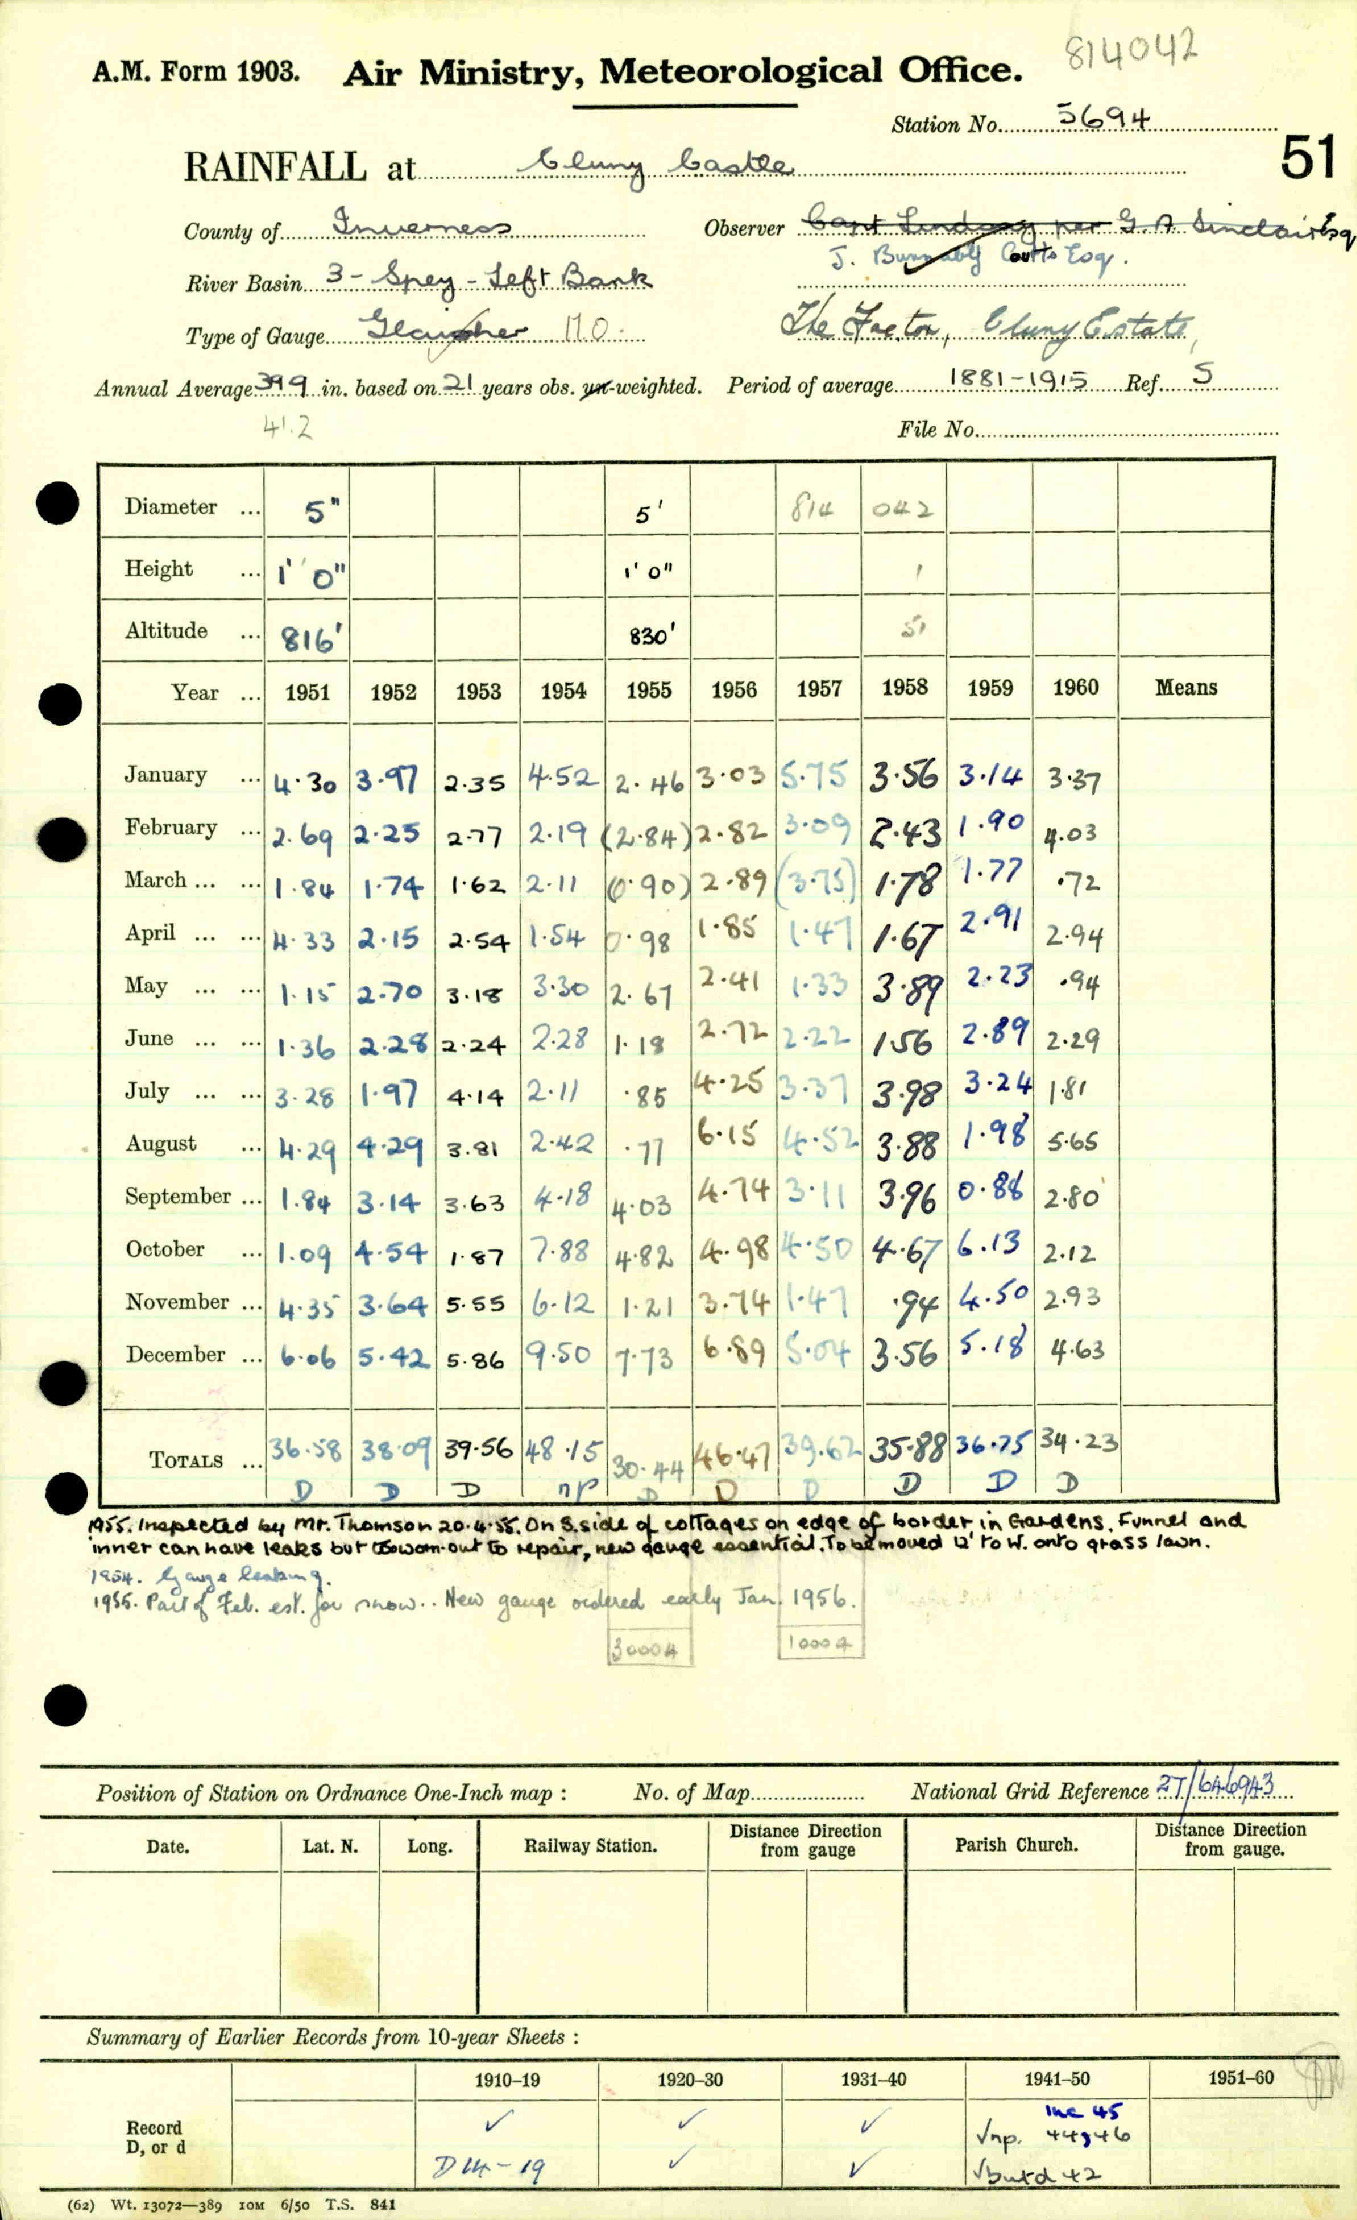 814042
A.M. Form 1903. Air Ministry, Meteorological Office.
Station No. 5694
51
RAINFALL at Cluny Castle
County of Inverness Observer Capt Lindsay per G. A Sinclair Esq
J. Burnaby Coutts Esq.
River Basin 3 - Spey - Left Bank
Type of Gauge Glaisher M.O. The Factor, Cluny Estate,
Annual Average 39.9 in. based on 21 years obs. un-weighted. Period of average 1881-1915 Ref. S
41.2
File No.
Diameter ... 5" 5' 814 042
Height ... 1' 0" 1' 0" 1
Altitude ... 816' 830' 51
Year ... 1951 1952 1953 1954 1955 1956 1957 1958 1959 1960 Means
January ... 4.30 3.97 2.35 4.52 2.46 3.03 5.75 3.56 3.14 3.37
February ... 2.69 2.25 2.77 2.19 (2.84) 2.82 3.09 2.43 1.90 4.03
March ... ... 1.84 1.74 1.62 2.11 (0.90) 2.89 (3.75) 1.78 1.77 .72
April ... ... 4.33 2.15 2.54 1.54 0.98 1.85 1.47 1.67 2.91 2.94
May ... ... 1.15 2.70 3.18 3.30 2.67 2.41 1.33 3.89 2.23 .94
June ... ... 1.36 2.28 2.24 2.28 1.18 2.72 2.22 1.56 2.89 2.29
July ... ... 3.28 1.97 4.14 2.11 .85 4.25 3.37 3.98 3.24 1.81
August ... 4.29 4.29 3.81 2.42 .77 6.15 4.52 3.88 1.98 5.65
September ... 1.84 3.14 3.63 4.18 4.03 4.74 3.11 3.96 0.88 2.80
October ... 1.09 4.54 1.87 7.88 4.82 4.98 4.50 4.67 6.13 2.12
November ... 4.35 3.64 5.55 6.12 1.21 3.74 1.47 .94 4.50 2.93
December ... 6.06 5.42 5.86 9.50 7.73 6.89 5.04 3.56 5.18 4.63
TOTALS ... 36.58 38.09 39.56 48.15 30.44 46.47 39.62 35.88 36.75 34.23
D D D np D D D D D D
1955. Inspected by Mr. Thomson 20.4.55. On S. side of cottages on edge of border in Gardens. Funnel and
inner can have leaks but too worn-out to repair, new gauge essential. To be moved 12' to W. onto grass lawn.
1954. Gauge leaking.
1955. Part of Feb. est. for snow.. New gauge ordered early Jan. 1956.
30004 10004
Position of Station on Ordnance One-Inch map : No. of Map National Grid Reference 27/646943
Date. Lat. N. Long. Railway Station. Distance Direction from gauge Parish Church. Distance Direction from gauge.
Summary of Earlier Records from 10-year Sheets :
1910-19 1920-30 1931-40 1941-50 1951-60
Record ✓ ✓ ✓ inc 45
√np. 44,46
D, or d D 14-19 ✓ ✓ √but d 42
(62) Wt. 13072—389 10M 6/50 T.S. 841